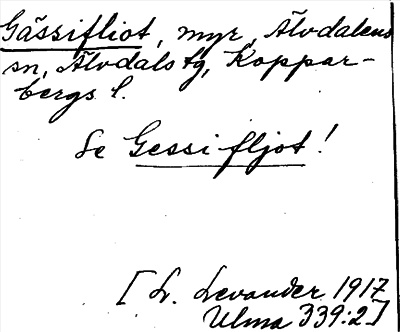 Gässifliot, myr, Älvdalens
sn, Älvdals tg, Koppar-
bergs l.
Se Gessifljot!
[L. Levander 1917
Ulma 339:2.]